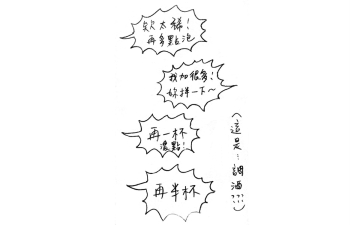 欸太稀!
再多點泡
我加很多!
妳拌一下~
再一杯
濃點!
再半杯
(這是…調酒???)